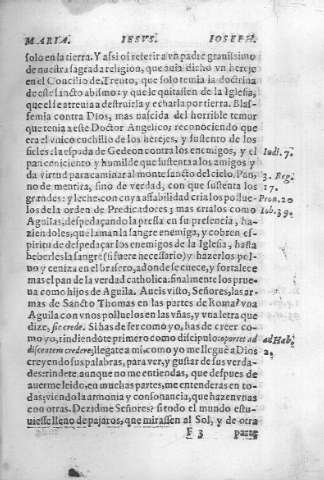 MARIA. IESVS. IOSEPH.
solo en la tierra. Y assi oi referir a vn padre grauissimo
de nuestra sagrada religion, que auia dicho vn hereje
en el Concilio de Trento, que solo temia la doctrina
de este sancto abismo: y que le quitassen de la Iglesia,
que el se atreuia a destruirla y echarla por tierra. Blas-
femia contra Dios, mas nascida del horrible temor
que tenia a este Doctor Angelico: reconociendo que
era el vnico cuchillo de los herejes, y sustento de los
fieles: la espada de Gedeon contra los enemigos, y el
Iudi. 7.
pan ceniciento y humilde que sustenta los amigos y
da virtud para caminar al monte sancto del cielo. Pan,
3. Reg.
no de mentira, sino de verdad, con que sustenta los
17.
grandes: y leche, con cuya affabilidad cria los pollue-
Prou. 20
los de la orden de Predicadores; mas crialos como
Iob. 39.
Aguilas, despedaçando la presa en su presencia, ha-
ziendoles, que laman la sangre enemiga, y cobren es-
piritu de despedaçar los enemigos de la Iglesia, hasta
beberles la sangre (si fuere necessario) y hazerlos pol-
uo y ceniza en el brasero, adonde se cuece, y fortalece
mas el pan de la verdad catholica. finalmente los prue-
ua como hijos de Aguila. Aueis visto, Señores, las ar-
mas de Sancto Thomas en las partes de Roma? vna
Aguila con vnos polluelos en las vñas, y vna letra que
dize, sic crede. Si has de ser como yo, has de creer co-
mo yo, rindiendote primero como discipulo: oportet ad
ad Hab.
discentem credere, llegate a mi, como yo me llegué a Dios
creyendo sus palabras, para ver, y gustar de sus verda-
des: rindete: aunque no me entiendas, que despues de
auerme leido, en muchas partes, me entenderas en to-
das; viendo la armonia y consonancia, que hazen vnas
con otras. Dezidme Señores? si todo el mundo estu-
uiesse lleno de pajaros, que mirassen al Sol, y de otra
F 3 parte